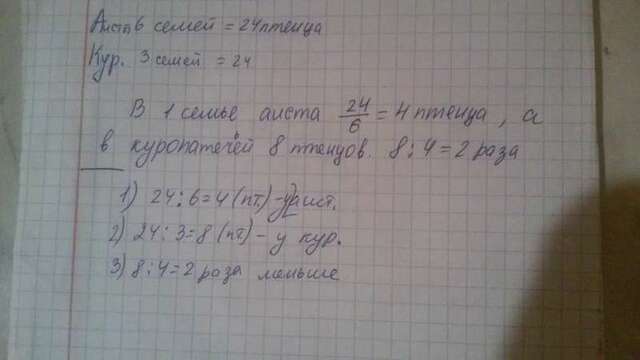 Аист 6 семей = 24 птенца
Кур. 3 семей = 24
В 1 семье аиста 24/6 = 4 птенца, а
в куропатечей 8 птенцов. 8:4=2 раза
1) 24:6=4(пт)-у аист.
2) 24:3=8(пт)-у кур.
3) 8:4=2 раза меньше